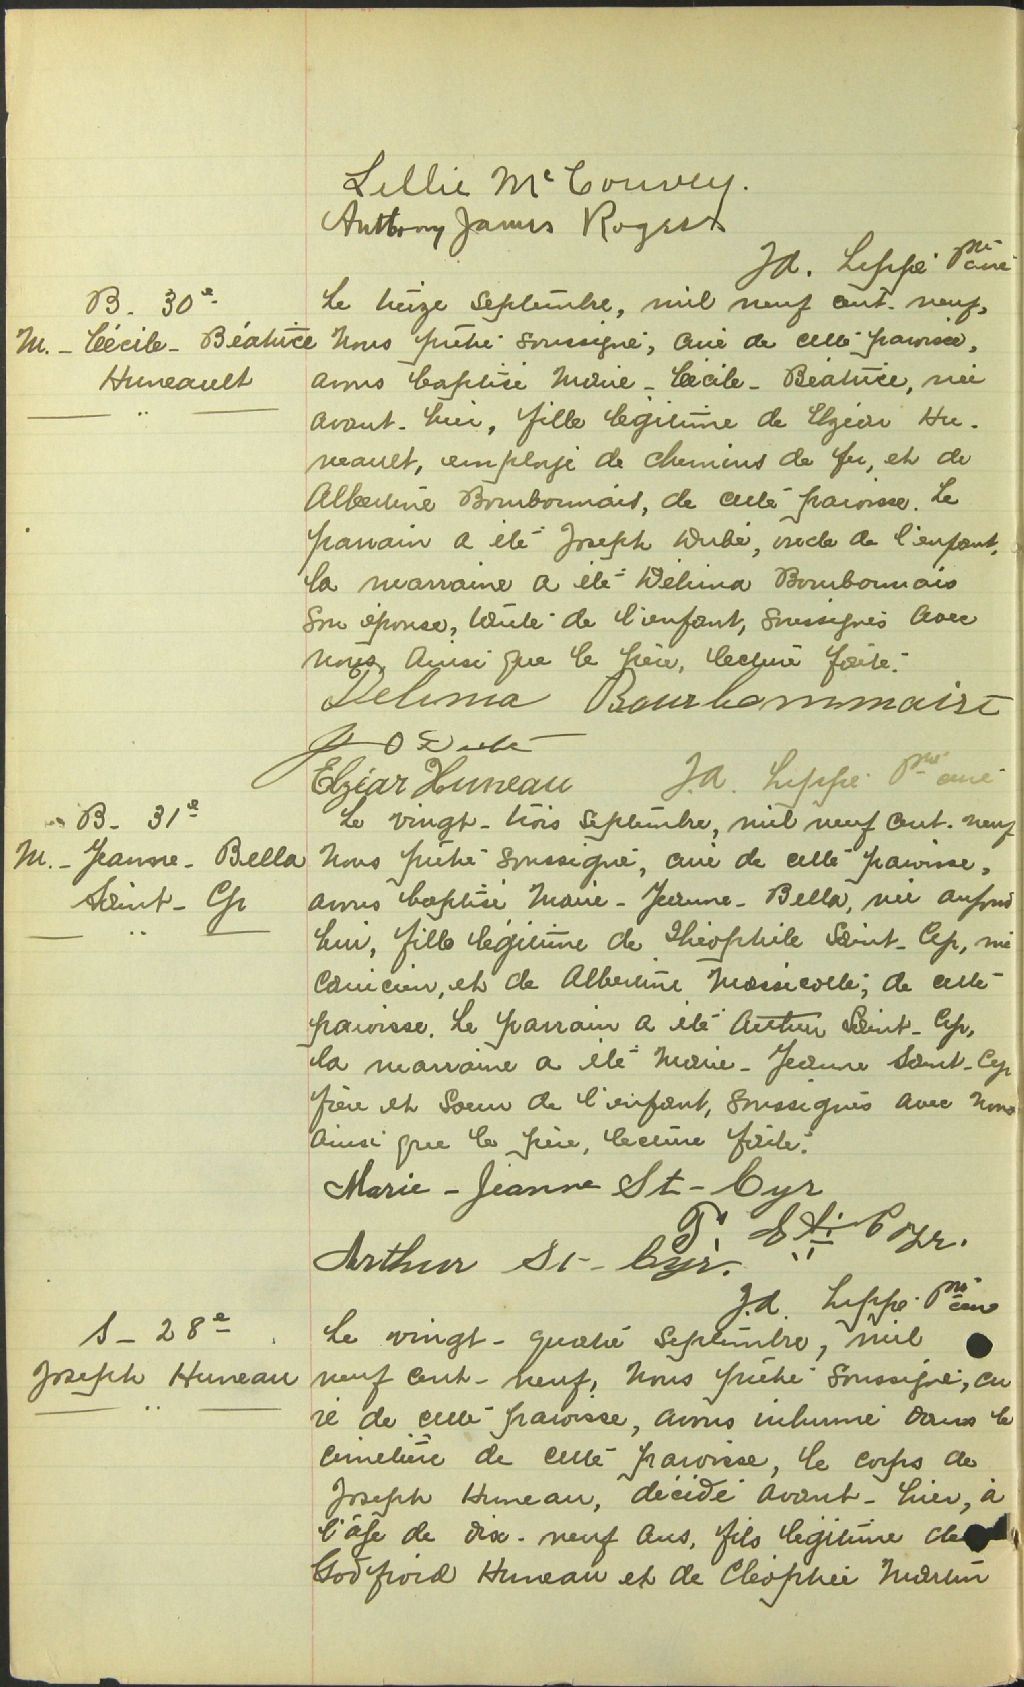 Lillie McConvey.
Anthony James Rogers
J.A. Lippé Ptre curé
B. 30e
M. - Cécile - Béatrice
Huneault
Le treize septembre, mil neuf cent neuf,
Nous prêtre soussigné, curé de cette paroisse,
avons baptisé Marie - Cécile - Béatrice, née
avant-hier, fille légitime de Elzéar Hu-
neault, employé de chemins de fer, et de
Albertine Bourbonnais, de cette paroisse. Le
parrain a été Joseph Dubé, oncle de l'enfant,
la marraine a été Délima Bourbonnais
son épouse, tante de l'enfant, soussignés avec
nous, ainsi que le père, lecture faite.
Delima Bourbommaist
Elzéar Huneau J.A. Lippé Ptre curé
B. 31e
M. - Jeanne - Bella
Saint - Cyr
Le vingt-trois septembre, mil neuf cent-neuf
Nous prêtre soussigné, curé de cette paroisse,
avons baptisé Marie - Jeanne - Bella, née aujourd
hui, fille légitime de Théophile Saint-Cyr, mé
canicien, et de Albertine Massicotte, de cette
paroisse. Le parrain a été Arthur Saint-Cyr,
la marraine a été Marie - Jeanne Saint-Cyr
frère et soeur de l'enfant, soussignés avec nous
ainsi que le père, lecture faite.
Marie - Jeanne St - Cyr
T. St. Cyr.
Arthur St - Cyr.
J.A. Lippé Ptre curé
S - 28e
Joseph Huneau
Le vingt-quatre septembre, mil
neuf cent-neuf, Nous prêtre soussigné, cu
ré de cette paroisse, avons inhumé dans le
cimetière de cette paroisse, le corps de
Joseph Huneau, décédé avant-hier, à
l'âge de dix-neuf ans, fils légitime de
Godfroid Huneau et de Cléophée Martin